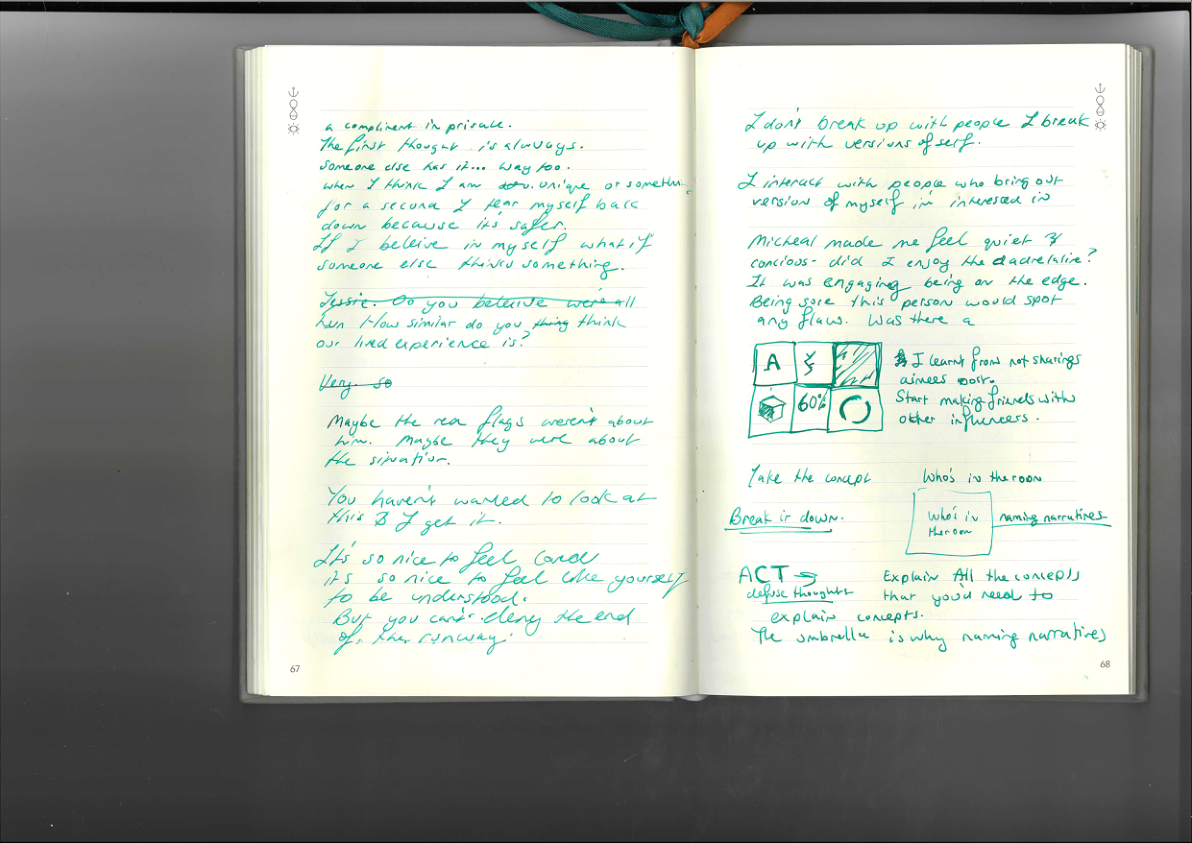 a compliment in private.
The first thought is always.
someone else has it... way too.
when I think I am unique or somethin
for a second I tear myself back
down because it's safer.
If I beleive in myself what if
someone else thinks something.
Jessie. Do you beleive we're all
hun How similar do you thing think
our lived experience is?
Very. so
Maybe the red flags weren't about
him. Maybe they were about
the situation.
You haven't wanted to look at
this & I get it.
It's so nice to feel loved
it's so nice to feel like yourself
to be understood.
But you can't deny the end
of the runway.
67
I don't break up with people I break
up with versions of self.
I interact with people who bring out
version of myself i'm interested in
Micheal made me feel quiet &
concious - did I enjoy the
It was engaging being on the edge.
Being sore this person would spot
any flaw. Was there a
A
60%
I learnt from not sharings
aimees post.
Start making friends with
other influencers.
Take the concept
Who's in the room
Break it down.
Who's in
the room
naming narratives
ACT
defuse thoughts
Explain All the concepts
that you'd need to
explain concepts.
The umbrella is why naming narratives
68